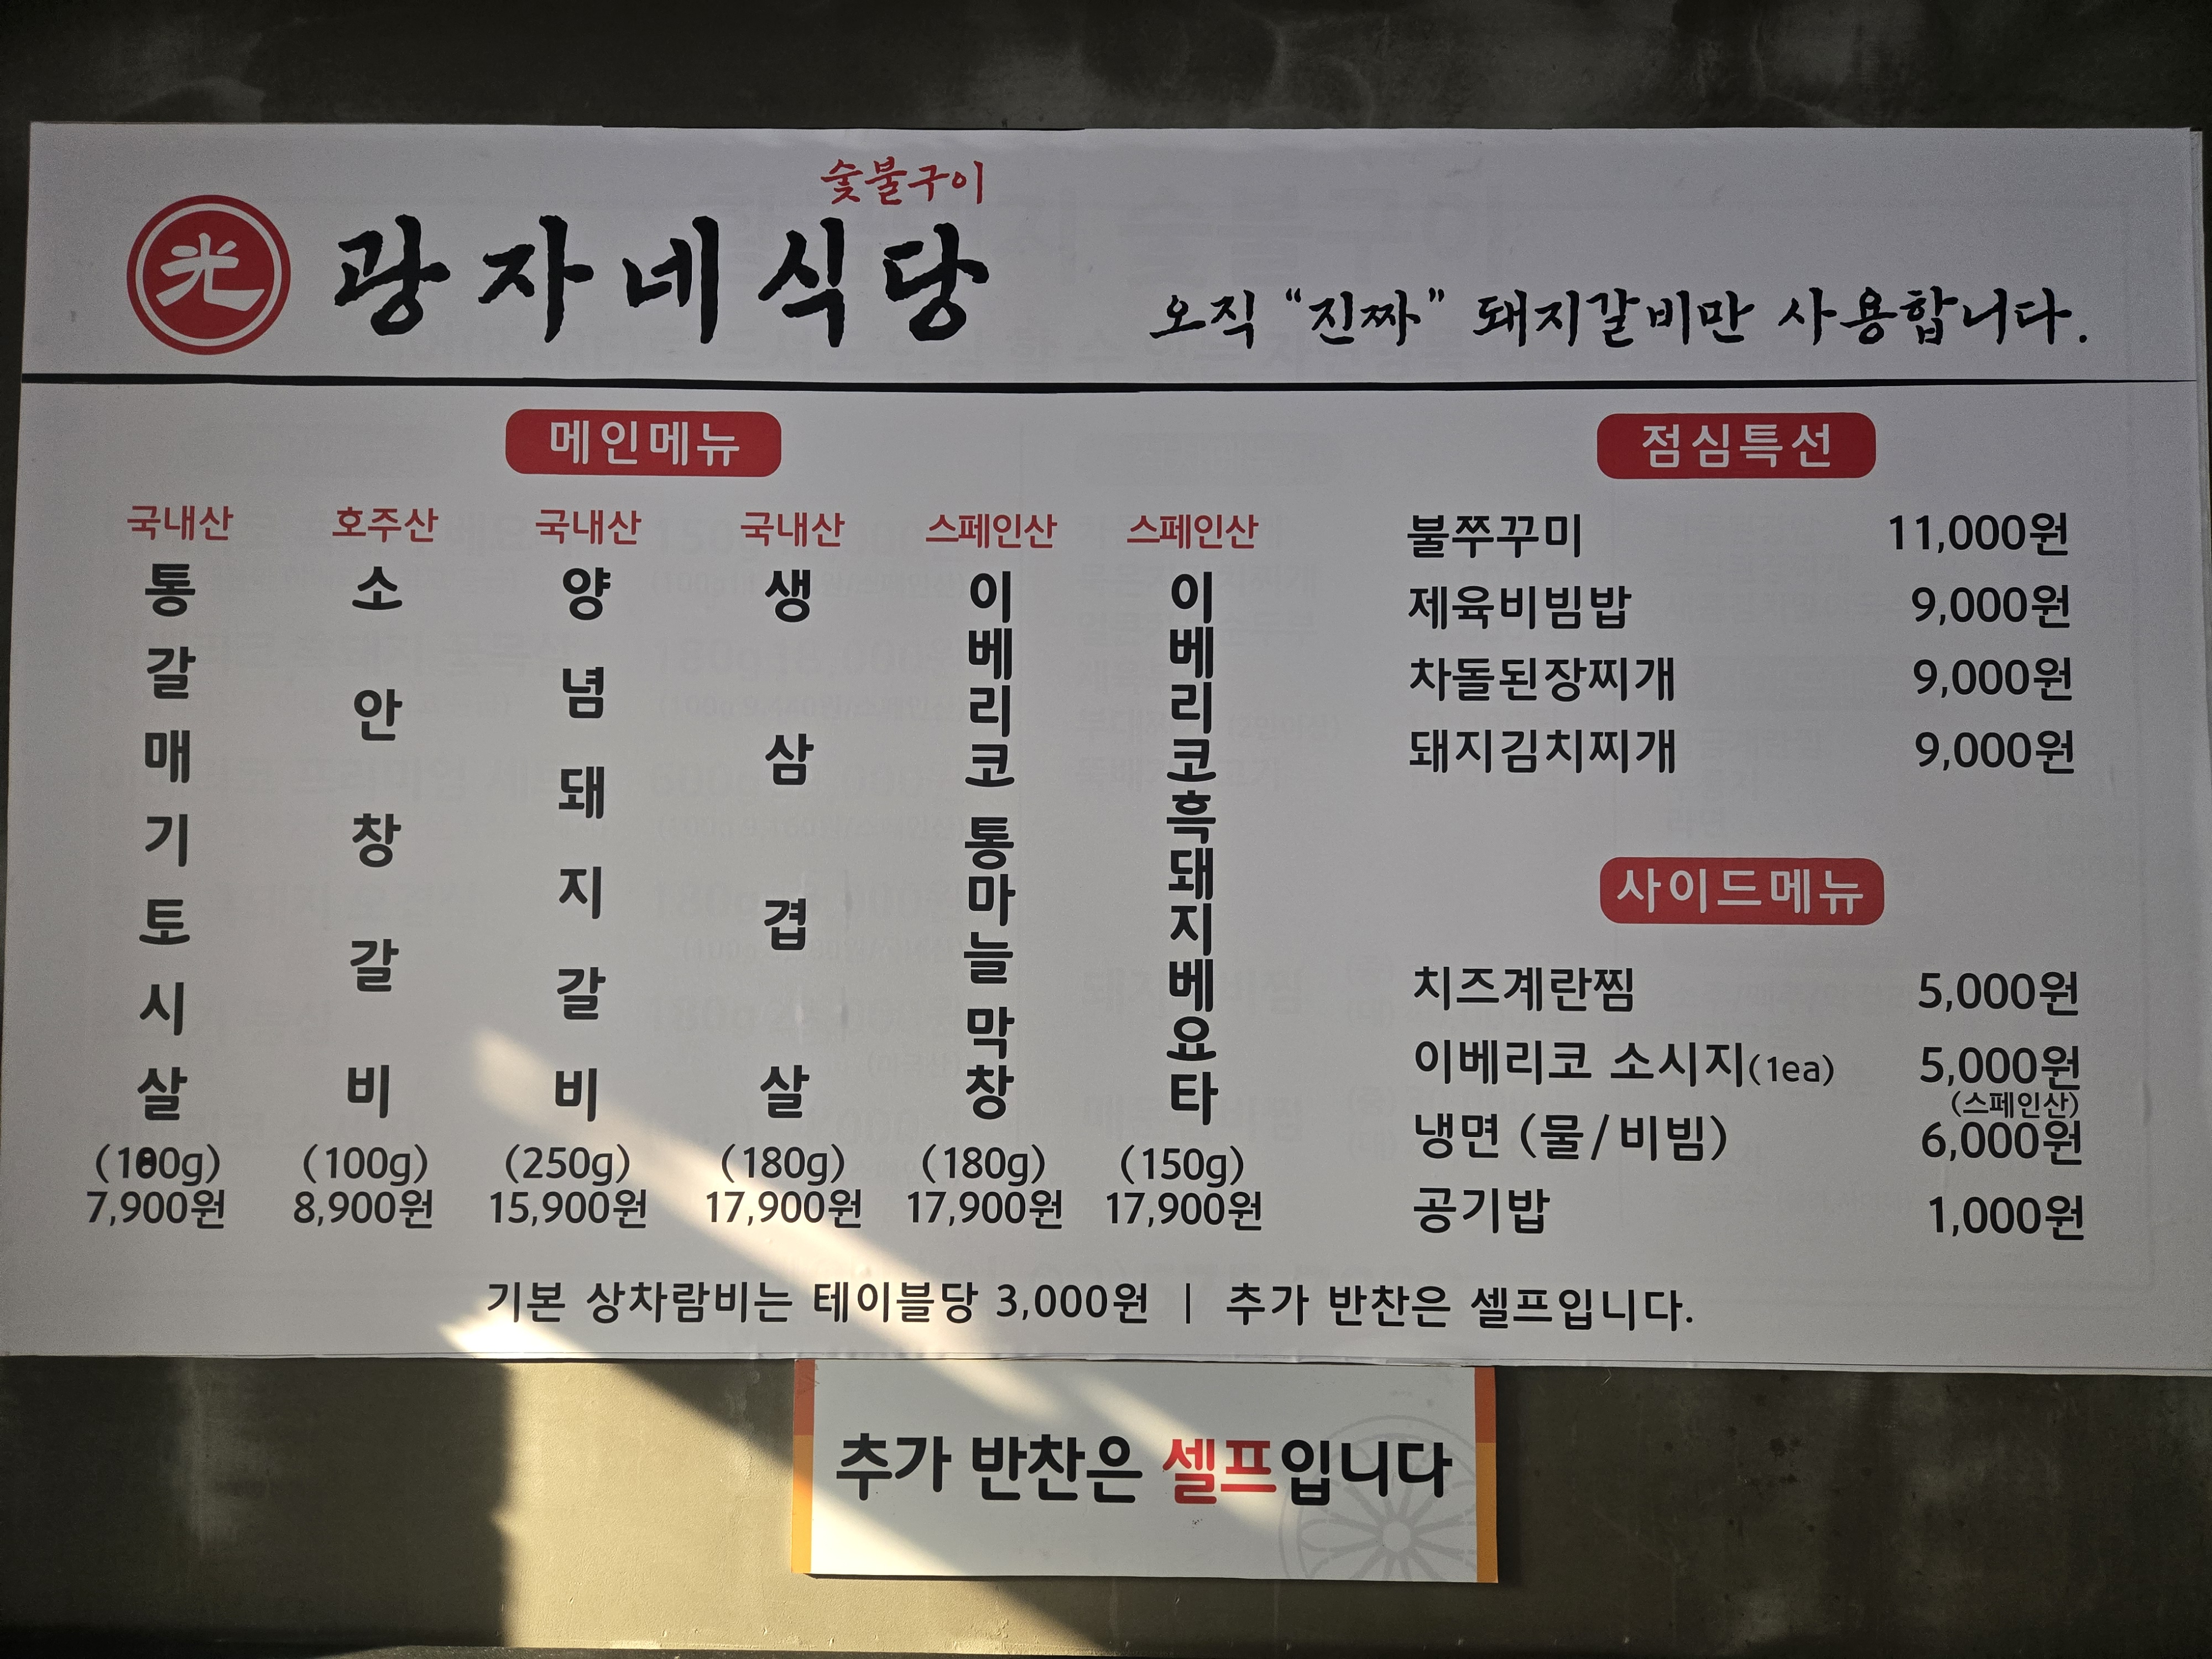 숯불구이
光 광자네식당
오직 “진짜” 돼지갈비만 사용합니다.
메인메뉴
국내산
통갈매기토시살
(100g)
7,900원
호주산
소안창갈비
(100g)
8,900원
국내산
양념돼지갈비
(250g)
15,900원
국내산
생삼겹살
(180g)
17,900원
스페인산
이베리코 통마늘 막창
(180g)
17,900원
스페인산
이베리코흑돼지베요타
(150g)
17,900원
점심특선
불쭈꾸미 11,000원
제육비빔밥 9,000원
차돌된장찌개 9,000원
돼지김치찌개 9,000원
사이드메뉴
치즈계란찜 5,000원
이베리코 소시지(1ea) 5,000원
(스페인산)
냉면 (물/비빔) 6,000원
공기밥 1,000원
기본 상차람비는 테이블당 3,000원 | 추가 반찬은 셀프입니다.
추가 반찬은 셀프입니다